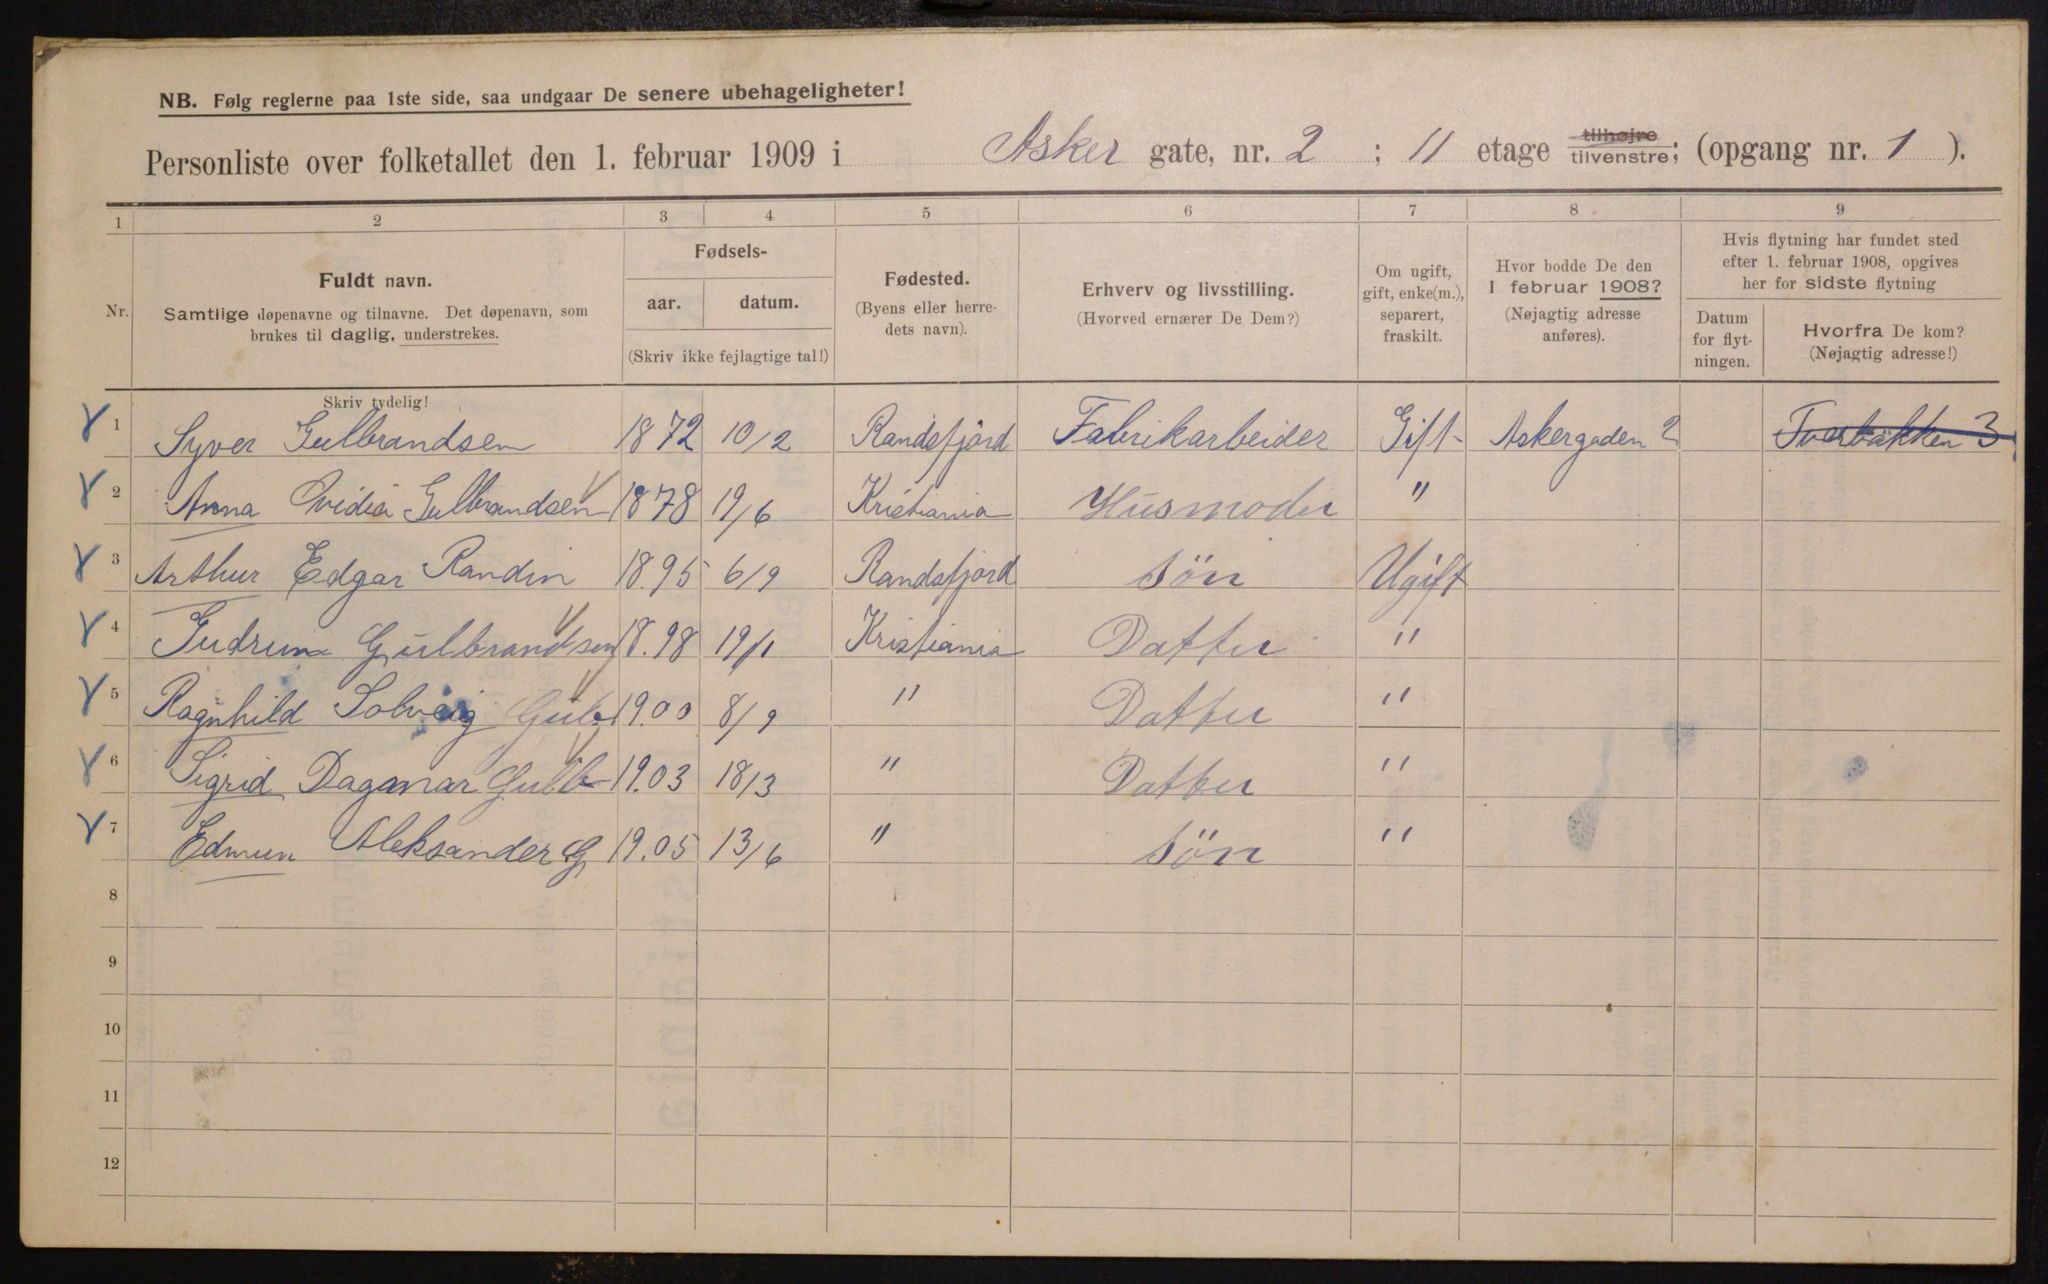 NB. Følg reglerne paa 1ste side, saa undgaar De senere ubehageligheter!
Personliste over folketallet den 1. februar 1909 i Asker gate, nr. 2 ; 11 etage tilhøjre tilvenstre; (opgang nr. 1 ).
1 2 3 4 5 6 7 8 9
Nr.
Fuldt navn.
Samtlige døpenavne og tilnavne. Det døpenavn, som
brukes til daglig, understrekes.
Fødsels-
aar. datum.
(Skriv ikke fejlagtige tal!)
Fødested.
(Byens eller herre-
dets navn).
Erhverv og livsstilling.
(Hvorved ernærer De Dem?)
Om ugift,
gift, enke(m.),
separert,
fraskilt.
Hvor bodde De den
1 februar 1908?
(Nøjagtig adresse
anføres).
Hvis flytning har fundet sted
efter 1. februar 1908, opgives
her for sidste flytning
Datum
for flyt-
ningen.
Hvorfra De kom?
(Nøjagtig adresse!)
Skriv tydelig!
1 Syver Gulbrandsen 1872 10/2 Randsfjord Fabrikarbeider Gift Askergaden 2 Tverbakken 3
2 Anna Ovidia Gulbrandsen 1878 19/6 Kristiania Husmoder "
3 Arthur Edgar Randin 18.95 6/9 Randsfjord Søn Ugift
4 Gudrun Gulbrandsen 18.98 19/1 Kristiania Datter "
5 Ragnhild Solveig Gulb. 19.00 8/9 " Datter "
6 Sigrid Dagmar Gulb 19.03 18/3 " Datter "
7 Edmun Aleksander G 19.05 13/6 " Søn "
8
9
10
11
12